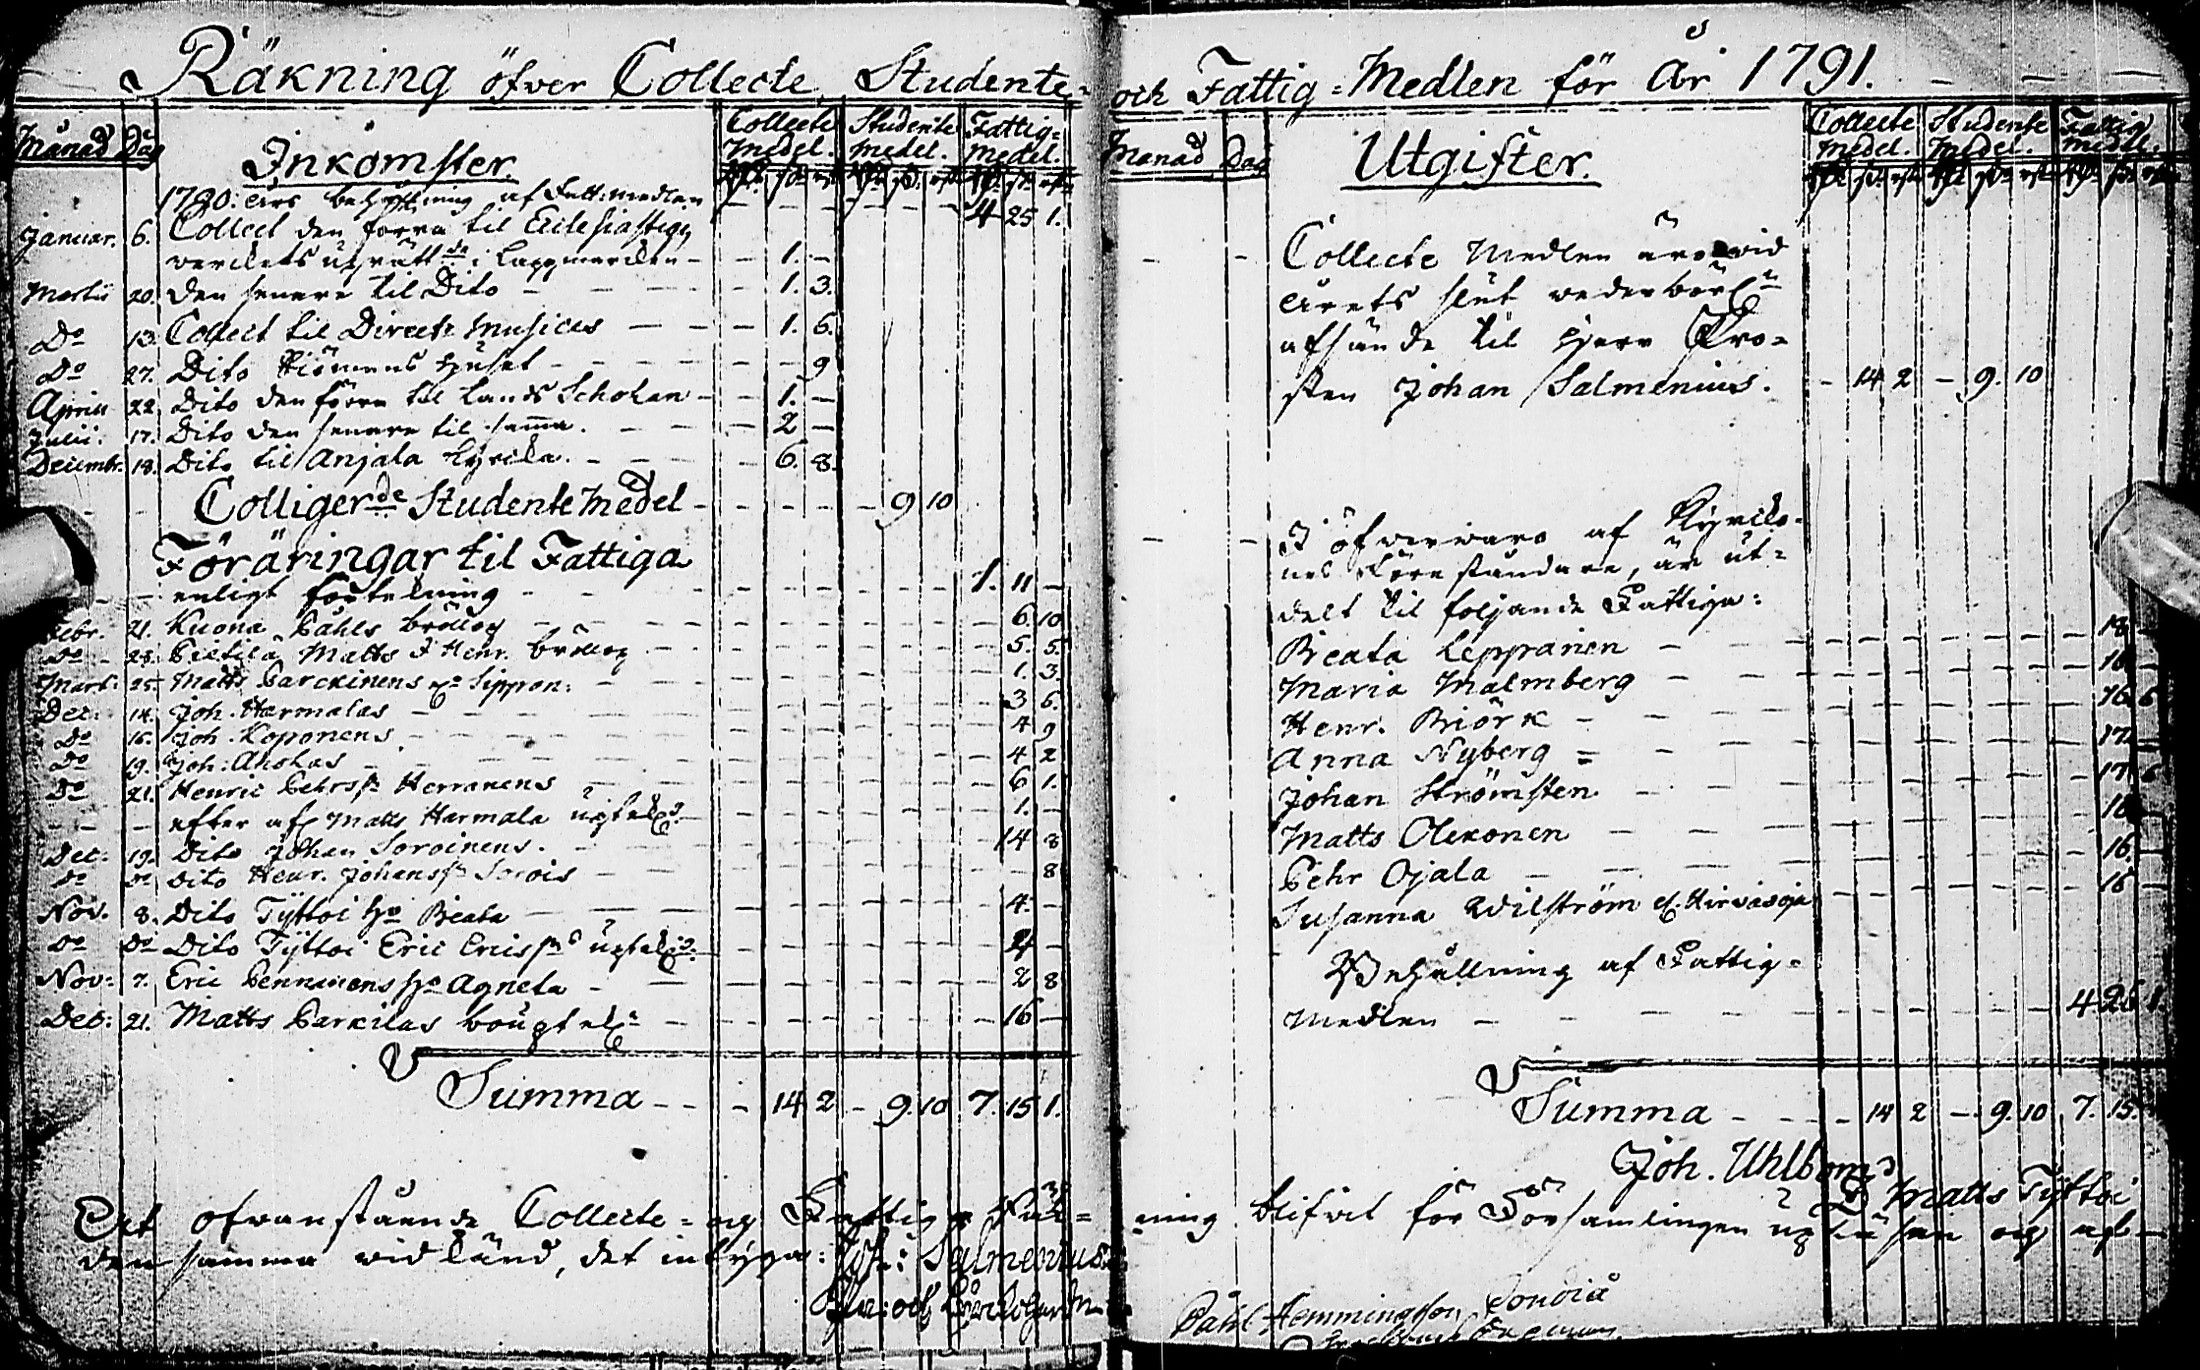 Räkning öfver Collecte, Studente=
Månad Dag Inkomster. Collecte Medel. Studente Medel. Fattig= Medel.
1790: års behållning af Fatt: medlen 4 25 1.
Januar. 6. Collect den förra til Ecclesiastique
verckets uprätt:de i Lappmarcken 1. -
Martii 20. den senare til Dito 1. 3.
Do 13. Collect til Direct: Musices 1. 6.
Do 27. Dito Huset 9
Aprill 22. Dito den förra til Lands Scholan 1. -
Julii. 17. Dito den senare til samma. 2 -
Decembr. 18. Dito til Anjala Kyrcka. 6. 8.
Colligerde Studente Medel 9 10
Föräringar til Fattiga
enligt förtekning 1. 11 -
Febr. 21. Kuona Påhls bröllop 6. 10
Do 28. Pietila Matts & Henr. bröllop 5. 5.
Mart: 25. Matts Parckinens 1. 3.
Dec: 14. Joh. Harmalas 3 6.
Do 16. Joh. Koponens 4 9
Do 19. Joh: Ahokas 4 2
Do 21. Henric Pehrss: Herranens 6 1.
efter afl Matts Harmala 1. -
Dec: 19. Dito Johan Soroinens. 14 8
Do Do Dito Henr. Johanss: Sorois 8
Nov. 8. Dito Tyttoi Beata 4. -
Do Do Dito Tyttoi Eric Ericss: 4 -
Nov: 7. Eric Pennanens Agneta 2 8
Dec: 21. Matts Parkilas 16 -
Summa 14 2 - 9. 10 7. 15 1.
At ofvanstående Collecte= och Fattig Räk=
den samma vid länd, det intyga: Joh: Salmenius
och Fattig=Medlen för år 1791.
Månad Dag Utgifter. Collecte Medel. Studente Medel. Fattig Medel.
Collecte Medlen äro vid
årets slut vederbörl:n
afsände til Herr Pro=
sten Johan Salmenius. 14 2 - 9. 10
I öfvervaro af Kyrcko=
nes Föreståndare, är ut=
delt til följande Fattiga:
Beata Leppanen 18 -
Maria Malmberg 16 -
Henr. Biörk 16 6
Anna Nyberg 17 -
Johan Strömsten 17 6
Matts Olkonen 16 -
Pehr Ojala 16. -
Susanna Wilström el. Hirvasoja 16 -
Behållning af Fattig=
medlen 4 26 1
Summa 14 2 - 9. 10 7. 15.
Joh. Uhlbom
Matts Tyttoi
ning blifvit för Församlingen upläsen och af=
Påhl Hemmingsson